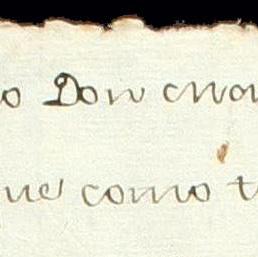 o Don Mo
ue como t